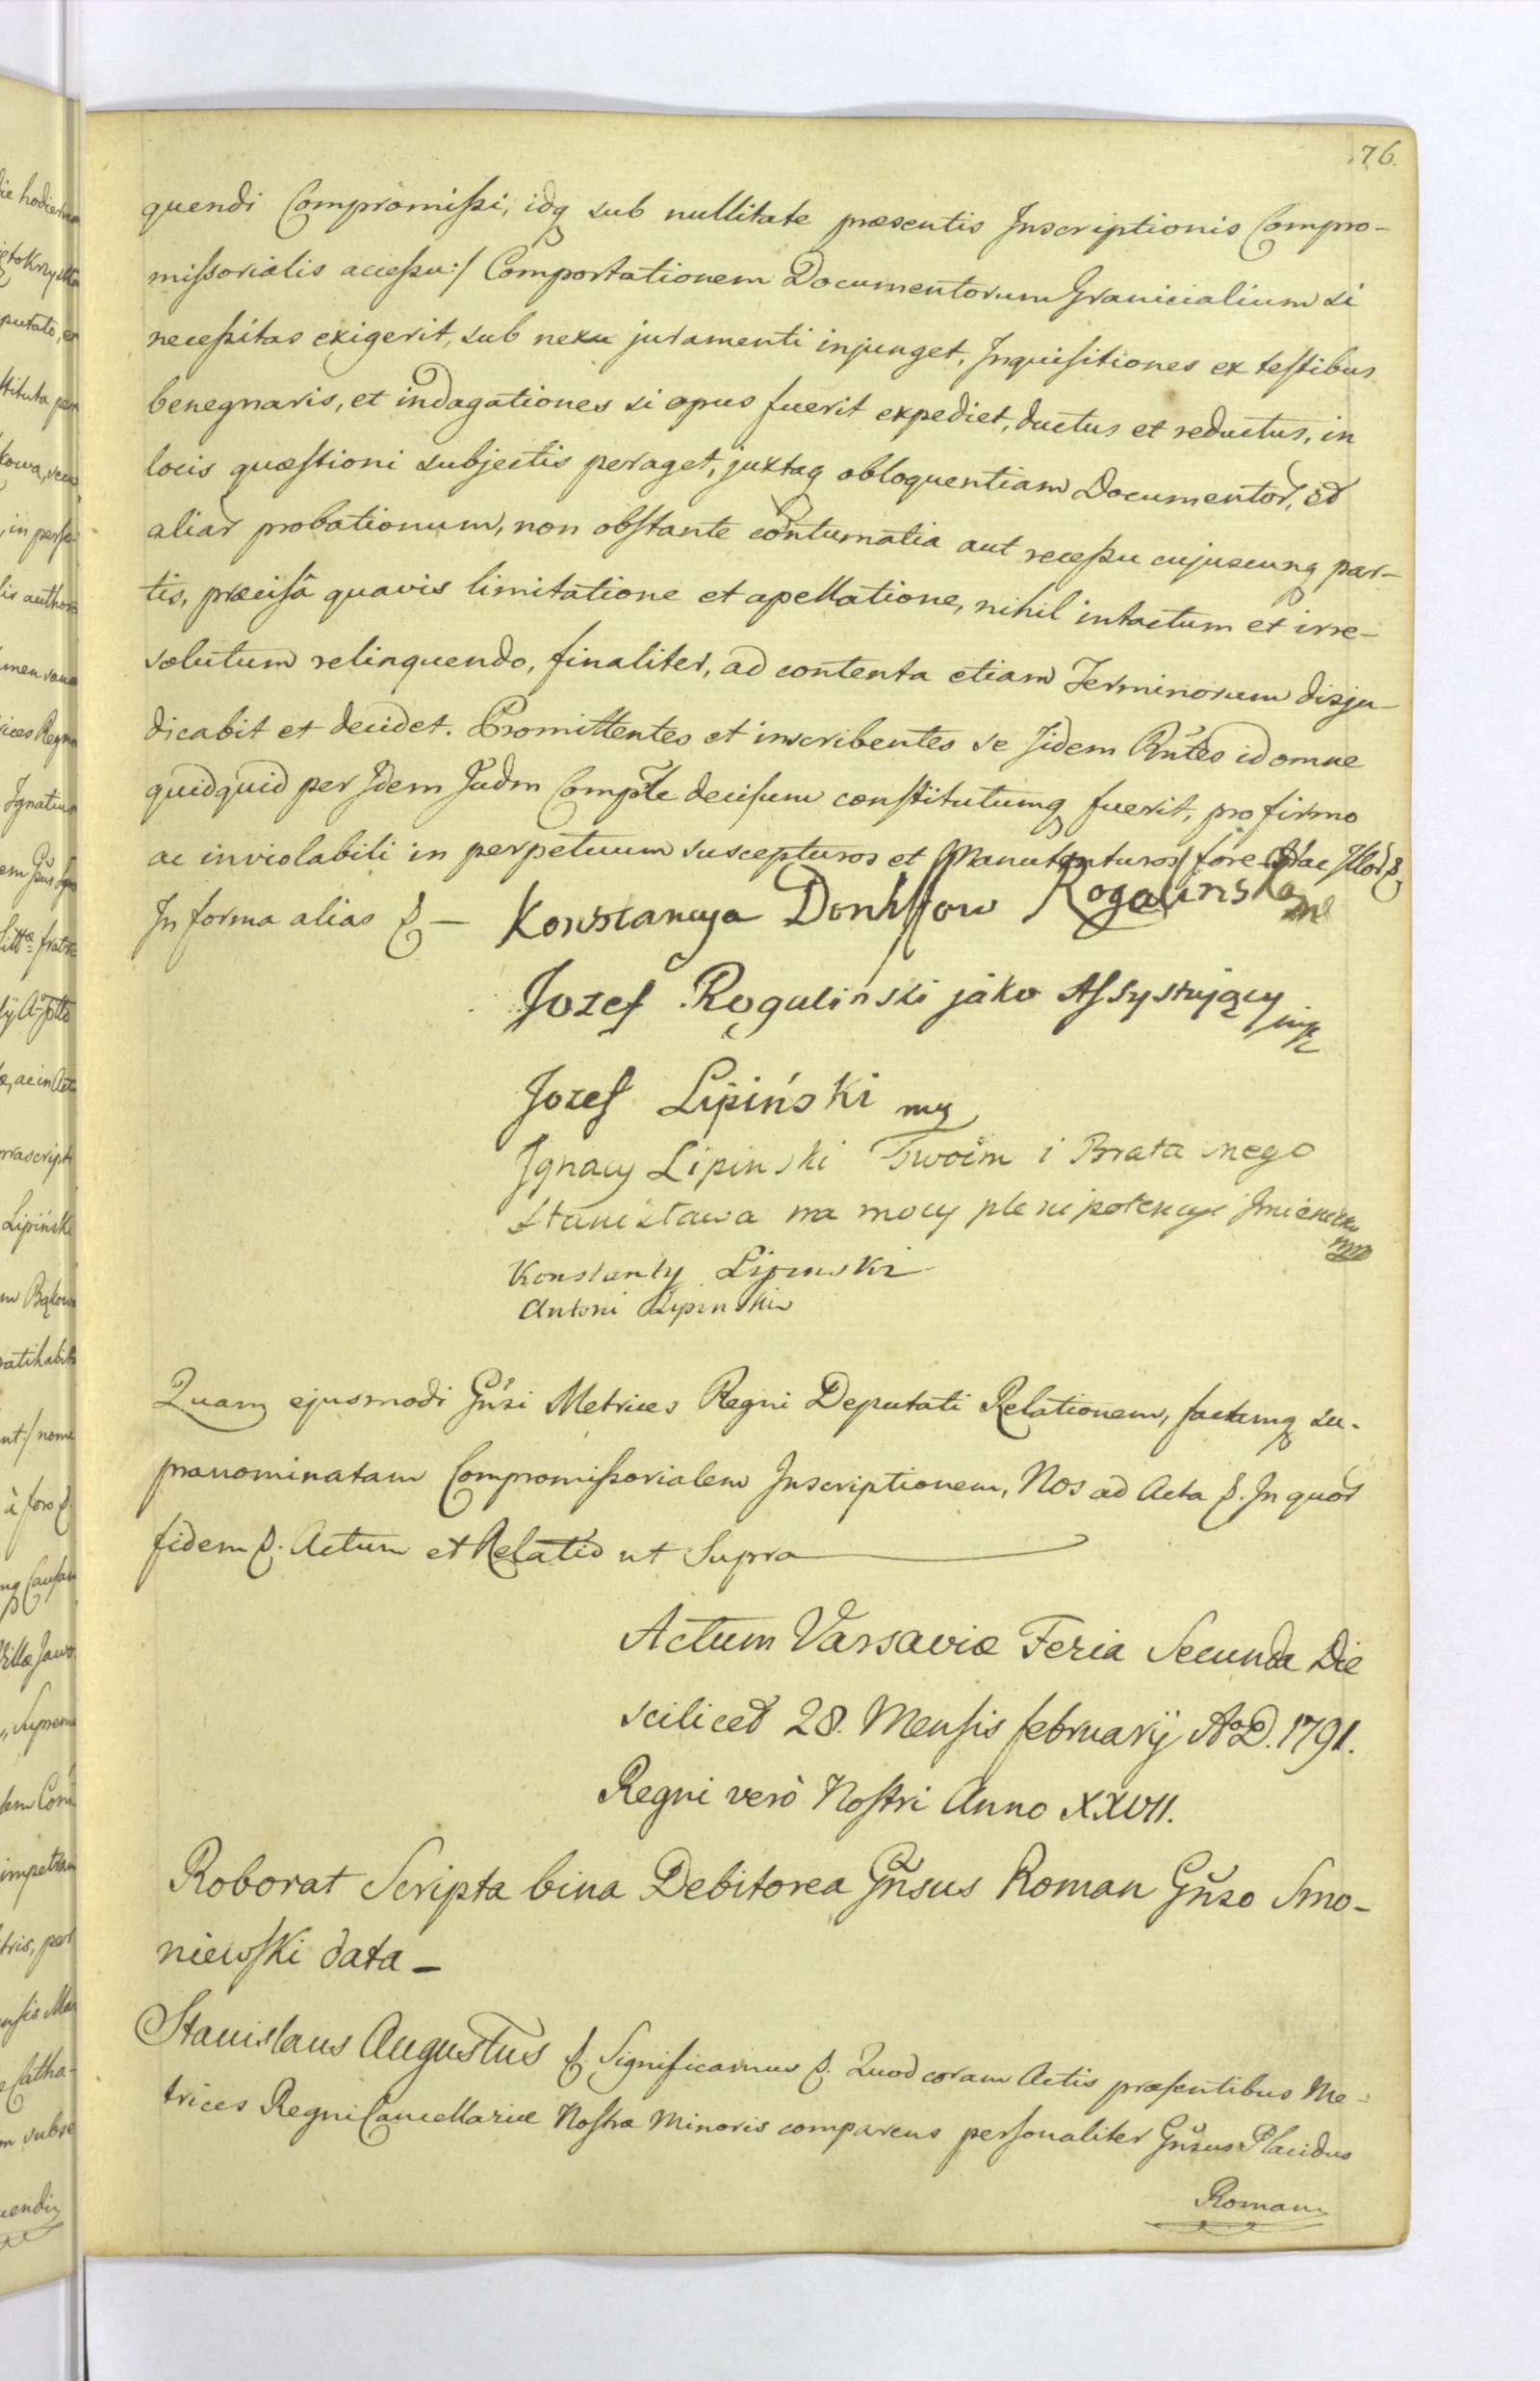 76.
quendi Compromissi, idq sub nullitate præsentis Inscriptionis Compro-
missorialis accessu:/ Comportationem Documentorum Granicialium si
necessitas exigerit, sub nexu juramenti injunget, Inquisitiones ex testibus
benegnaris, et indagationes si opus fuerit expediet, ductus et reductus, in
locis quæstioni subjectis peraget, juxtaq obloquentiam Documentor, et
aliar probationum, non obstante contumatia aut recessu cujuscunq par-
tis, præcisâ quavis limitatione et apellatione, nihil intactum et irre-
solutum relinquendo, finaliter, ad contenta etiam Terminorum disju-
dicabit et decidet. Promittentes et inscribentes se Iidem Rñtes id omne
quidquid per Idem Judm Comp̃le decisum constitutumq fuerit, pro firmo
ac inviolabili in perpetuum suscepturos et Manutenturos fore
In forma alias
Konstancya Donhffow Rogalinska
Jozef Rogalinski jáko Assystujący
Jozef Lipiński
Ignacy Lipinski Swoim i Brata mego
Stanisława na mocy plenipotencyi
Konstanty Lipinski
Antoni Lipinski
Quam ejusmodi Gñsi Metrices Regni Deputati Relationem, factamq su-
pranominatam Compromissorialem Inscriptionem, Nos ad Acta &. In quor
fidem &. Actum et Relatio ut Supra
Actum Varsaviæ Feria Secunda Die
scilicet 28. Mensis februarij AoD. 1791.
Regni verò Nostri Anno XXVII.
Roborat Scripta bina Debitorea Gñsus Roman Gñso Smo-
niewski data_
Stanislaus Augustus &. Significamus &. Quod coram Actis præsentibus Me-
trices Regni Cancellariæ Nostræ Minoris comparens personaliter Gñsus Placidus
Roman